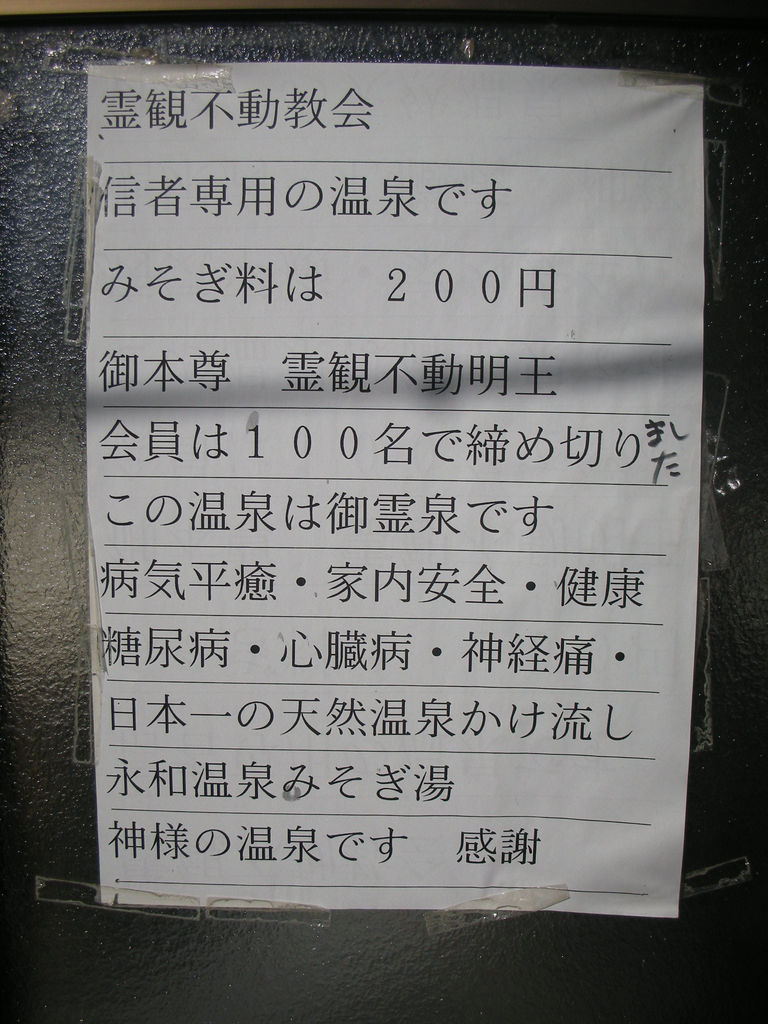 霊観不動教会
信者専用の温泉です
みそぎ料は　２００円
御本尊　霊観不動明王
会員は１００名で締め切りました
この温泉は御霊泉です
病気平癒・家内安全・健康
糖尿病・心臓病・神経痛・
日本一の天然温泉かけ流し
永和温泉みそぎ湯
神様の温泉です　感謝